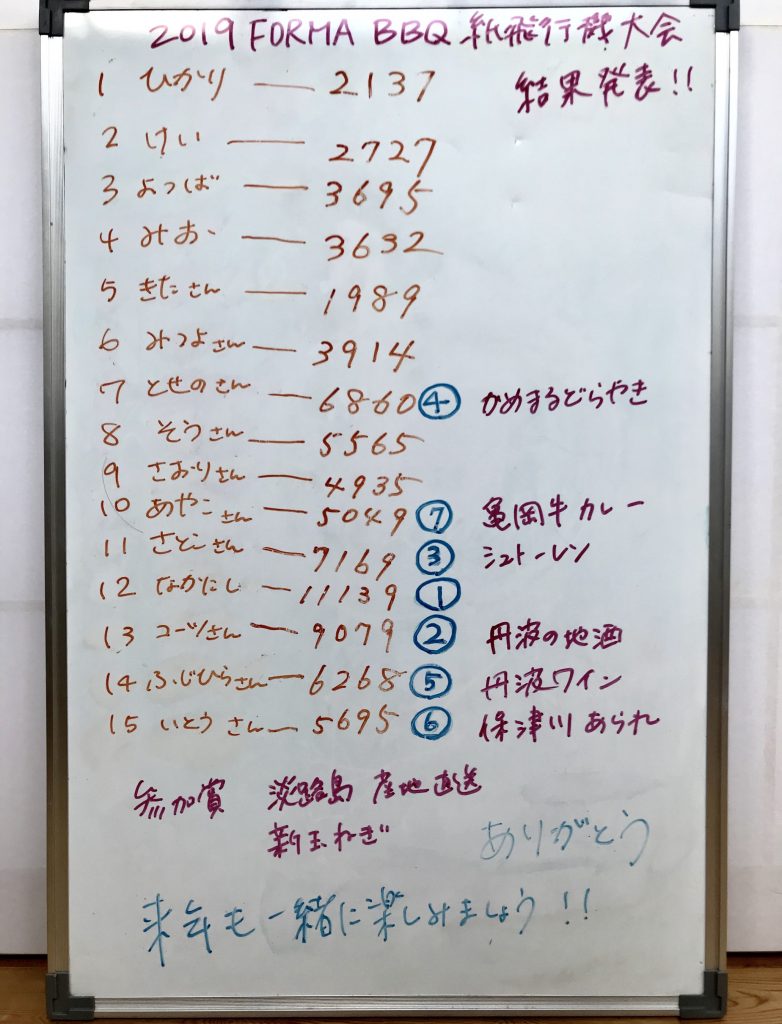 2019 FORMA BBQ 紙飛行機大会
結果発表!!
1 ひかり — 2137
2 けい — 2727
3 よつば — 3695
4 みお — 3632
5 きたさん — 1989
6 みつよさん — 3914
7 とせのさん — 6860 ④ かめまるどらやき
8 そうさん — 5565
9 さおりさん — 4935
10 あやこさん — 5049 ⑦ 亀岡牛カレー
11 さとこさん — 7169 ③ シュトーレン
12 なかにし — 11139 ①
13 コーツさん — 9079 ② 丹波の地酒
14 ふじひらさん — 6268 ⑤ 丹波ワイン
15 いとうさん — 5695 ⑥ 保津川あられ
参加賞 淡路島 産地直送
新玉ねぎ
ありがとう
来年も一緒に楽しみましょう!!